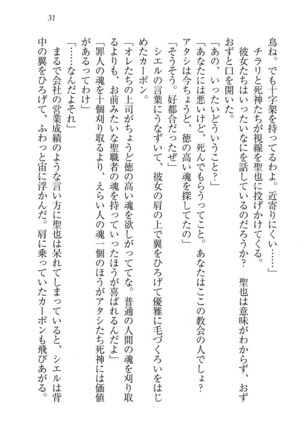 31
鳥ね。でも十字架を持っているわよ。近寄りにくい……」
チラリと死神たちが視線を聖也に投げかけてくる。
彼女たちはいったいなにを話しているのだろうか？　聖也は意味がわからず、おず
おずと口を開いた。
「あの、いったいどういうこと？」
「あなたには悪いけど、死んでもらうってこと。あなたはここの教会の人でしょ？
アタシたちちょうど、徳の高い魂を探してたの」
「そうそう。好都合だったぜ」
シエルの言葉にうなずいて、彼女の肩の上で翼をひろげて優雅に毛づくろいをはじ
めたカーボン。
「オレたちの上司がちょうど徳の高い魂を欲しがっててな。普通の人間の魂を刈り取
るよりも、お前みたいな聖職者の魂を持っていったほうが喜ばれるんだよ」
「罪人の魂を十個刈り取るより、えらい人の魂一個のほうがアタシたち死神には価値
があるってわけ」
「……なんだよそれ」
まるで会社の営業成績のような言い方に聖也は呆れてしまっていると、シエルは背
中の翼をひろげて、ふわっと宙に浮かんだ。肩に乗っていたカーボンも飛びあがる。